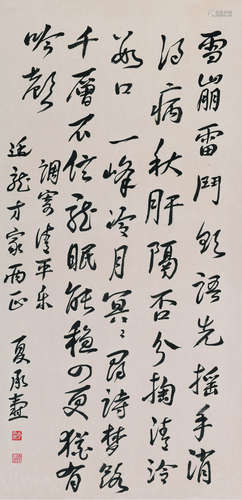 雪崩雷鬥欲語先搖手消
得病秋肝隔否分掬清泠
數口一峰冷月冥々尋詩夢路
千層不信龍眠能穩四更猶有
吟聲
調寄清平樂
廷龍方家兩正
夏承燾